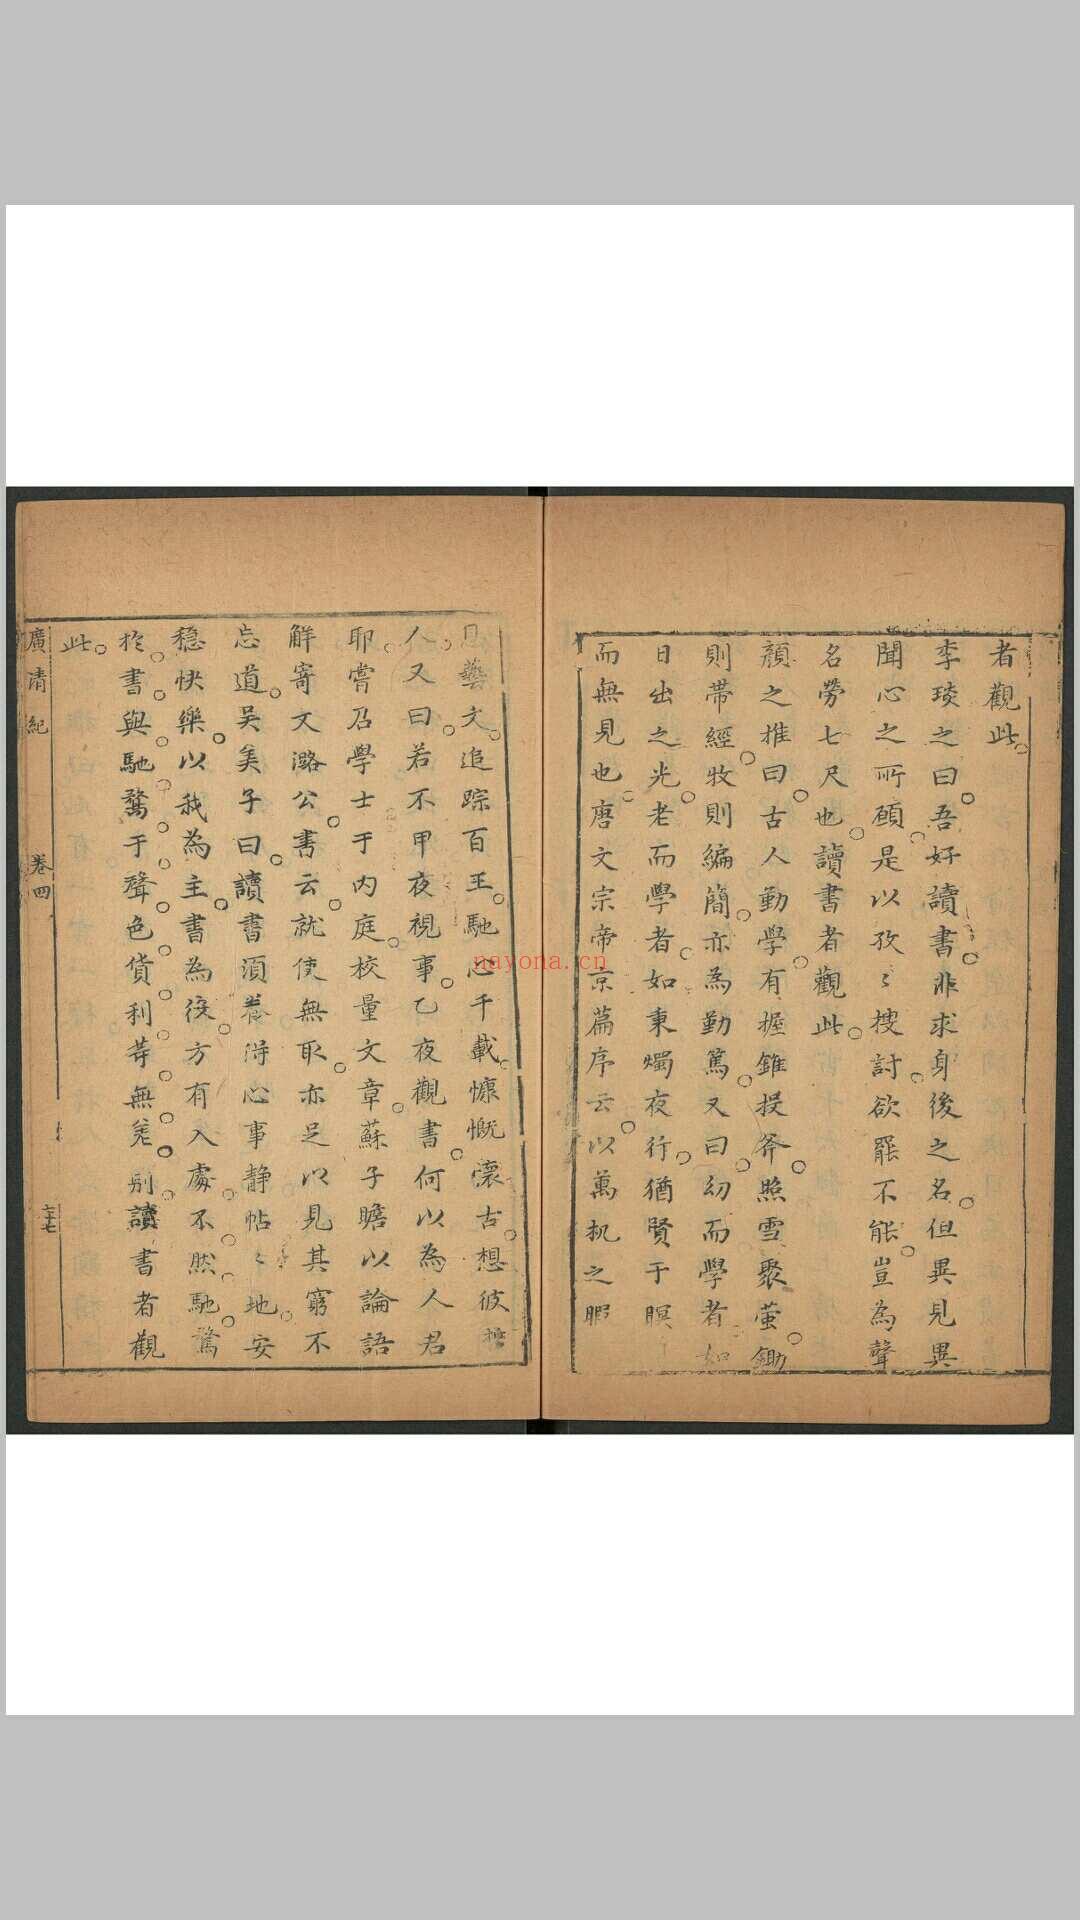 者觀此
李琰之曰吾好讀書非求身後之名但異見異
聞心之所願是以孜〻搜討欲罷不能豈為聲
名勞七尺也讀書者觀此
顏之推曰古人勤學有握錐投斧照雪聚萤鋤
則帶經牧則編簡亦為勤篤又曰幼而學者如
日出之光老而學者如秉燭夜行猶賢于瞑
而無見也唐文宗帝京篇序云以萬机之暇
藝文追踪百王馳心千載慷慨懷古想彼
人又曰若不甲夜視事乙夜觀書何以為人君
耶嘗召學士于内庭校量文章蘇子瞻以論語
解寄文潞公書云就使無取亦足以見其窮不
忘道吴美子曰讀書須養得心事静帖〻地安
穏快樂以我為主書為役方有入處不然馳騖
於書與馳騖于聲色貨利等無差别讀書者觀
此
廣清紀
卷四
nayona.cn